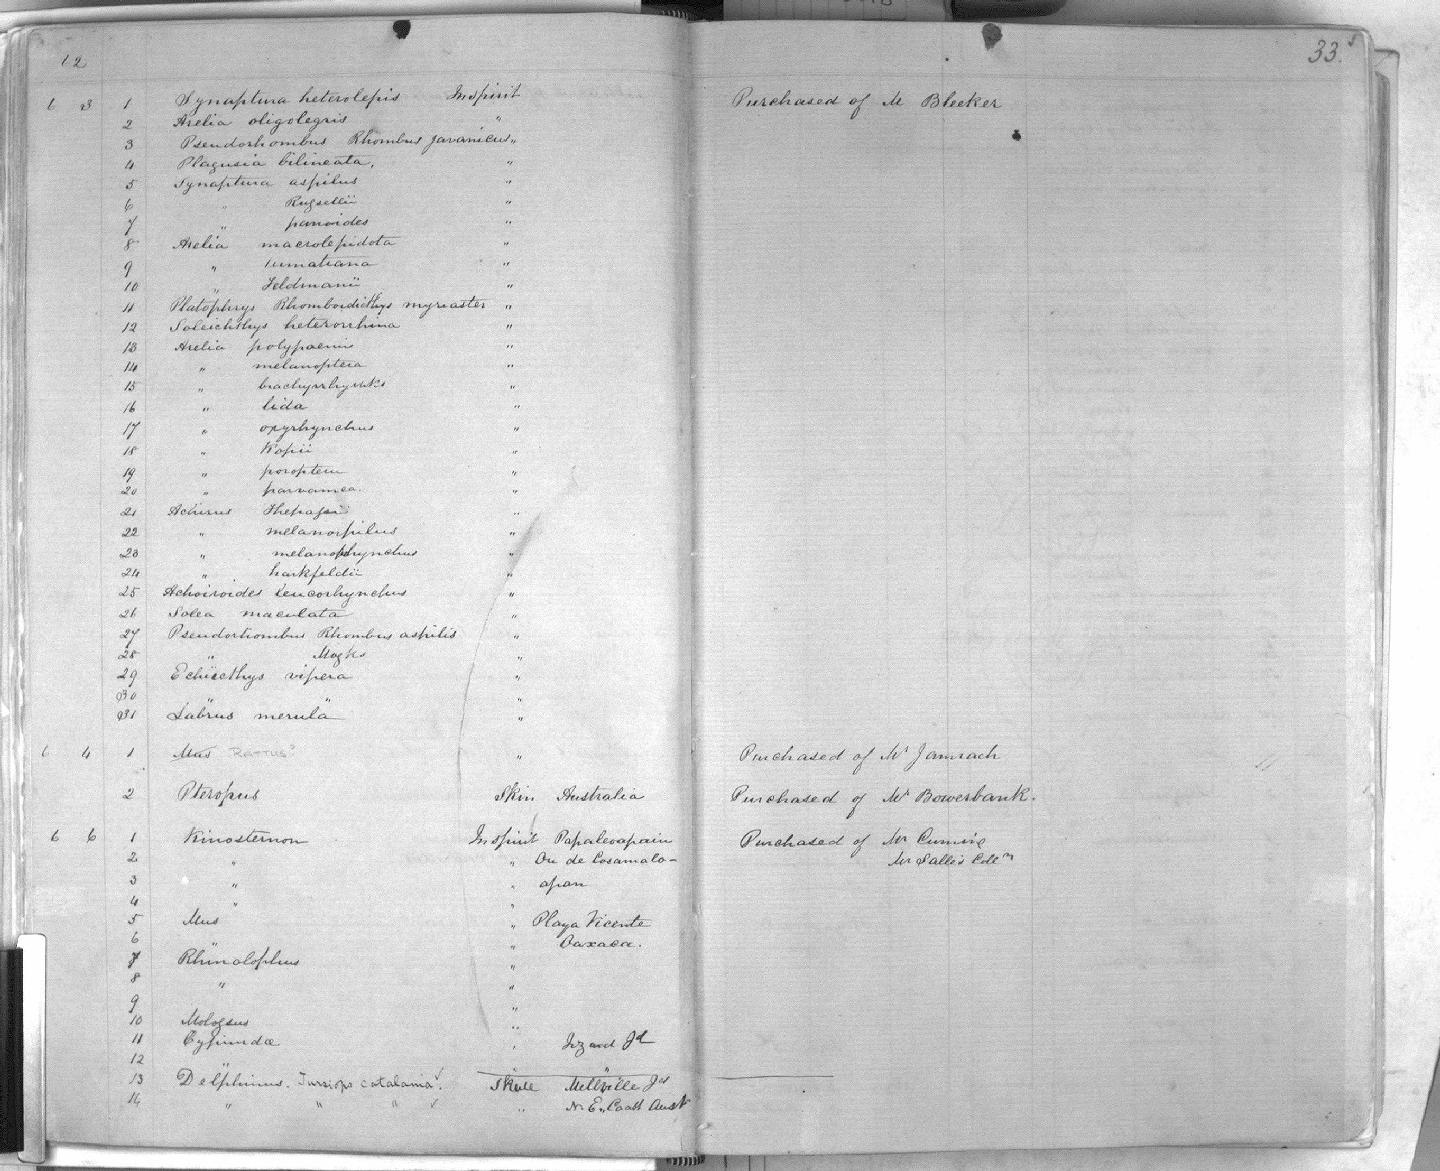 12
33
6 3 1 Synaptura heterolepis In spirit Purchased of M Bleeker
2 Arelia oligolepis "
3 Pseudorhombus Rhombus javanicus "
4 Plagusia bilineata, "
5 Synaptura aspilus "
6 " "
7 " panoides "
8 Arelia macrolepidota "
9 " sumatrana "
10 " Feldmanii "
11 Platophrys Rhomboidichthys myriaster "
12 Soleichthys heterorrhina "
13 Arelia "
14 " melanoptera "
15 " "
16 " lida "
17 " oxyrhynchus "
18 " Kopii "
19 " "
20 " "
21 Achirus "
22 " melanospilus "
23 " melanorhynchus "
24 " hartzfeldii "
25 Achiroides leucorhynchus "
26 Solea maculata "
27 Pseudorhombus Rhombus aspilis "
28 " "
29 Echiicthys vipera "
30 " " "
31 Labrus merula "
6 4 1 Mus Rattus? " Purchased of Mr Jamrach
2 Pteropus Skin Australia Purchased of Mr Bowerbank.
6 6 1 Kinosternon In spirit Papaleoapain Purchased of Mr Cuming
2 " " Ou de Cosamalo- Mr Salle's Coln
3 " " apan
4 " "
5 Mus " Playa Vicente
6 " " Oaxaca.
7 Rhinolophus "
8 " "
9 "
10 Molossus "
11 Cyprinidæ " Izard Id
12 " "
13 Delphinus. Tursiops catalania ✓. Skull Mellville Ids
14 " " " ✓ " N. E. Coast Aust